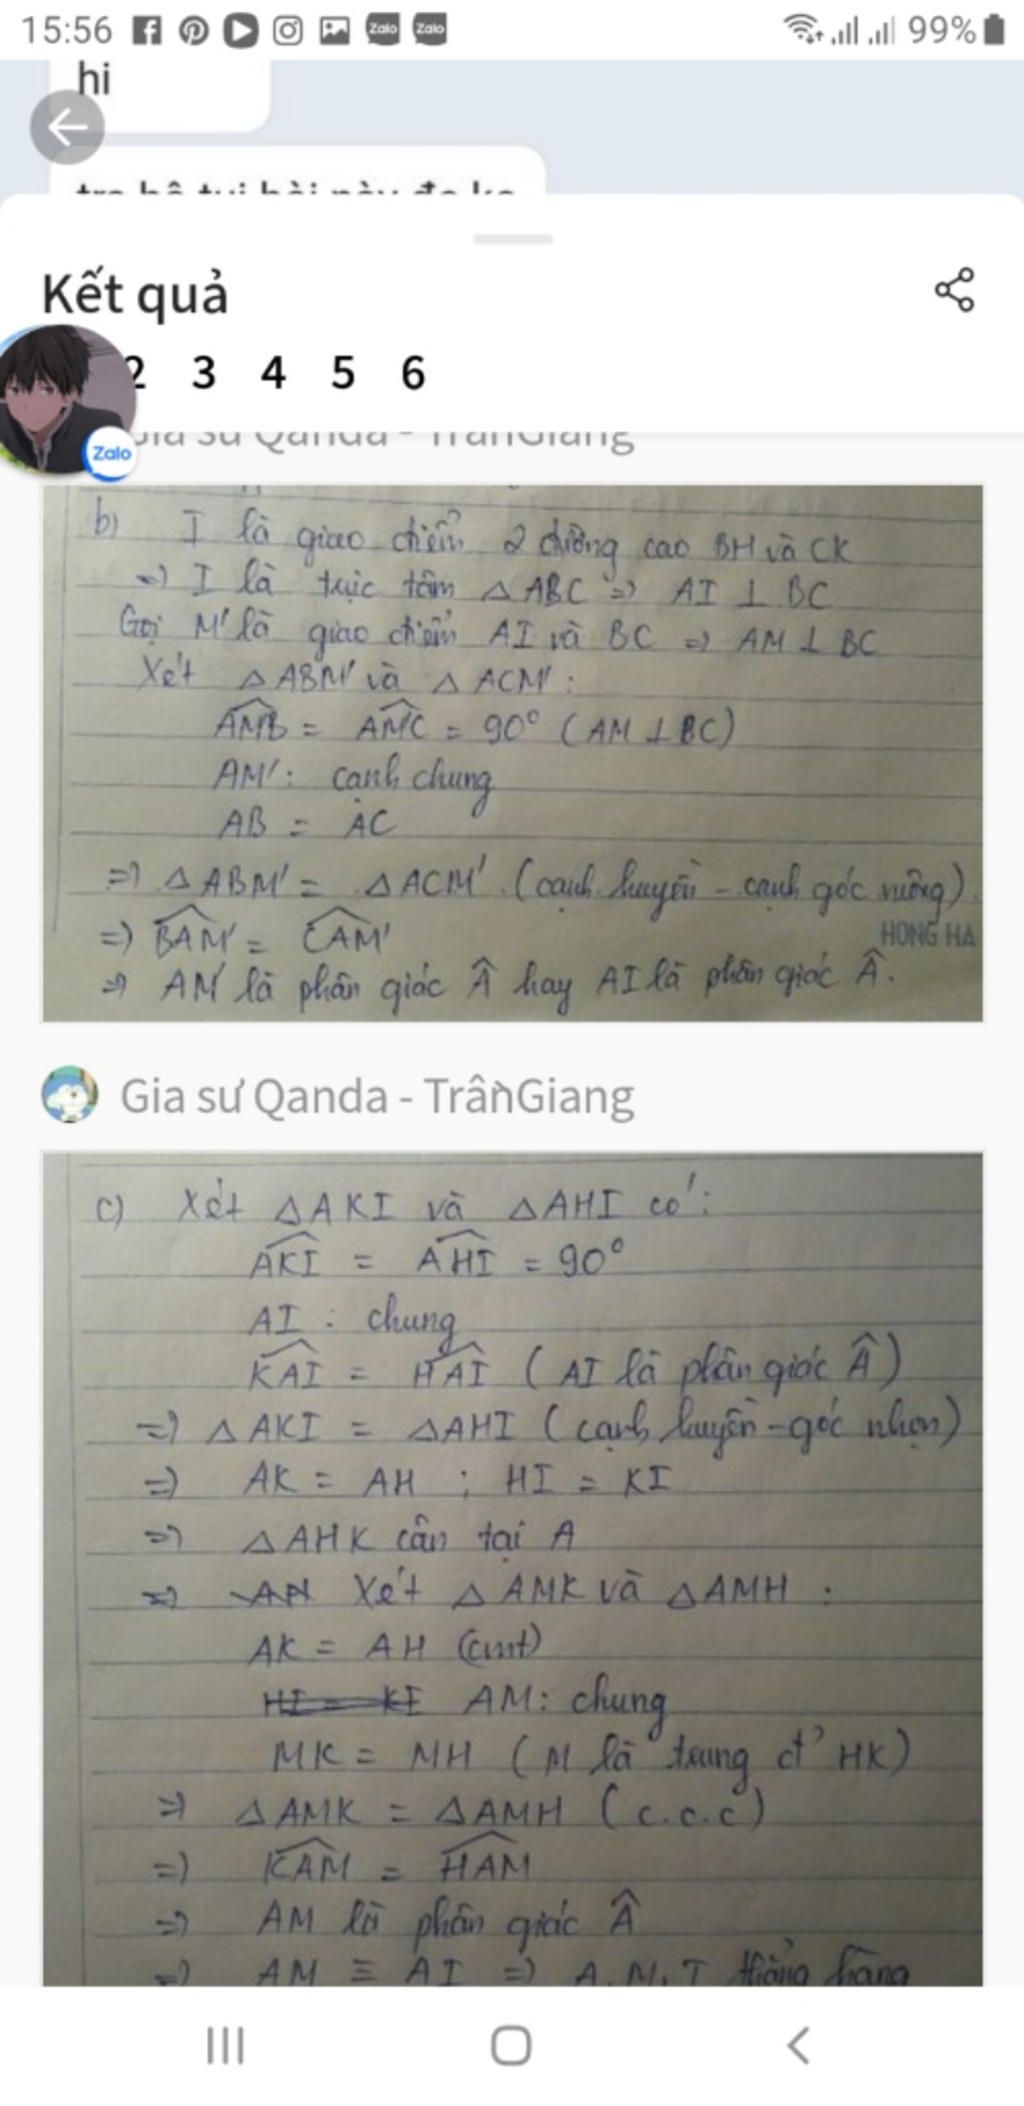 15:56
Zalo
Zalo
99%
hi
Kết quả
2 3 4 5 6
Zalo
Gia sư Qanda - TrầnGiang
b) I là giao điểm 2 đường cao BH và CK
=> I là trực tâm △ ABC => AI ⊥ BC
Gọi M' là giao điểm AI và BC => AM ⊥ BC
Xét △ ABM' và △ ACM' :
AMB = AMC = 90° ( AM ⊥ BC)
AM' : cạnh chung
AB = AC
=> △ ABM' = △ ACM' (cạnh huyền - cạnh góc vuông)
=> BAM' = CAM'
HONG HA
=> AM' là phân giác Â hay AI là phân giác Â.
Gia sư Qanda - TrầnGiang
c) Xét △AKI và △AHI có :
AKI = AHI = 90°
AI : chung
KAI = HAI ( AI là phân giác Â )
=> △ AKI = △AHI ( cạnh huyền - góc nhọn )
=> AK = AH ; HI = KI
=> △AHK cân tại A
=> Xét △ AMK và △AMH :
AK = AH (cmt)
HI = KI AM : chung
MK = MH ( M là trung đ' HK )
=> △AMK = △AMH ( c.c.c )
=> KAM = HAM
=> AM là phân giác Â
=> AM ≡ AI => A, M, I thẳng hàng